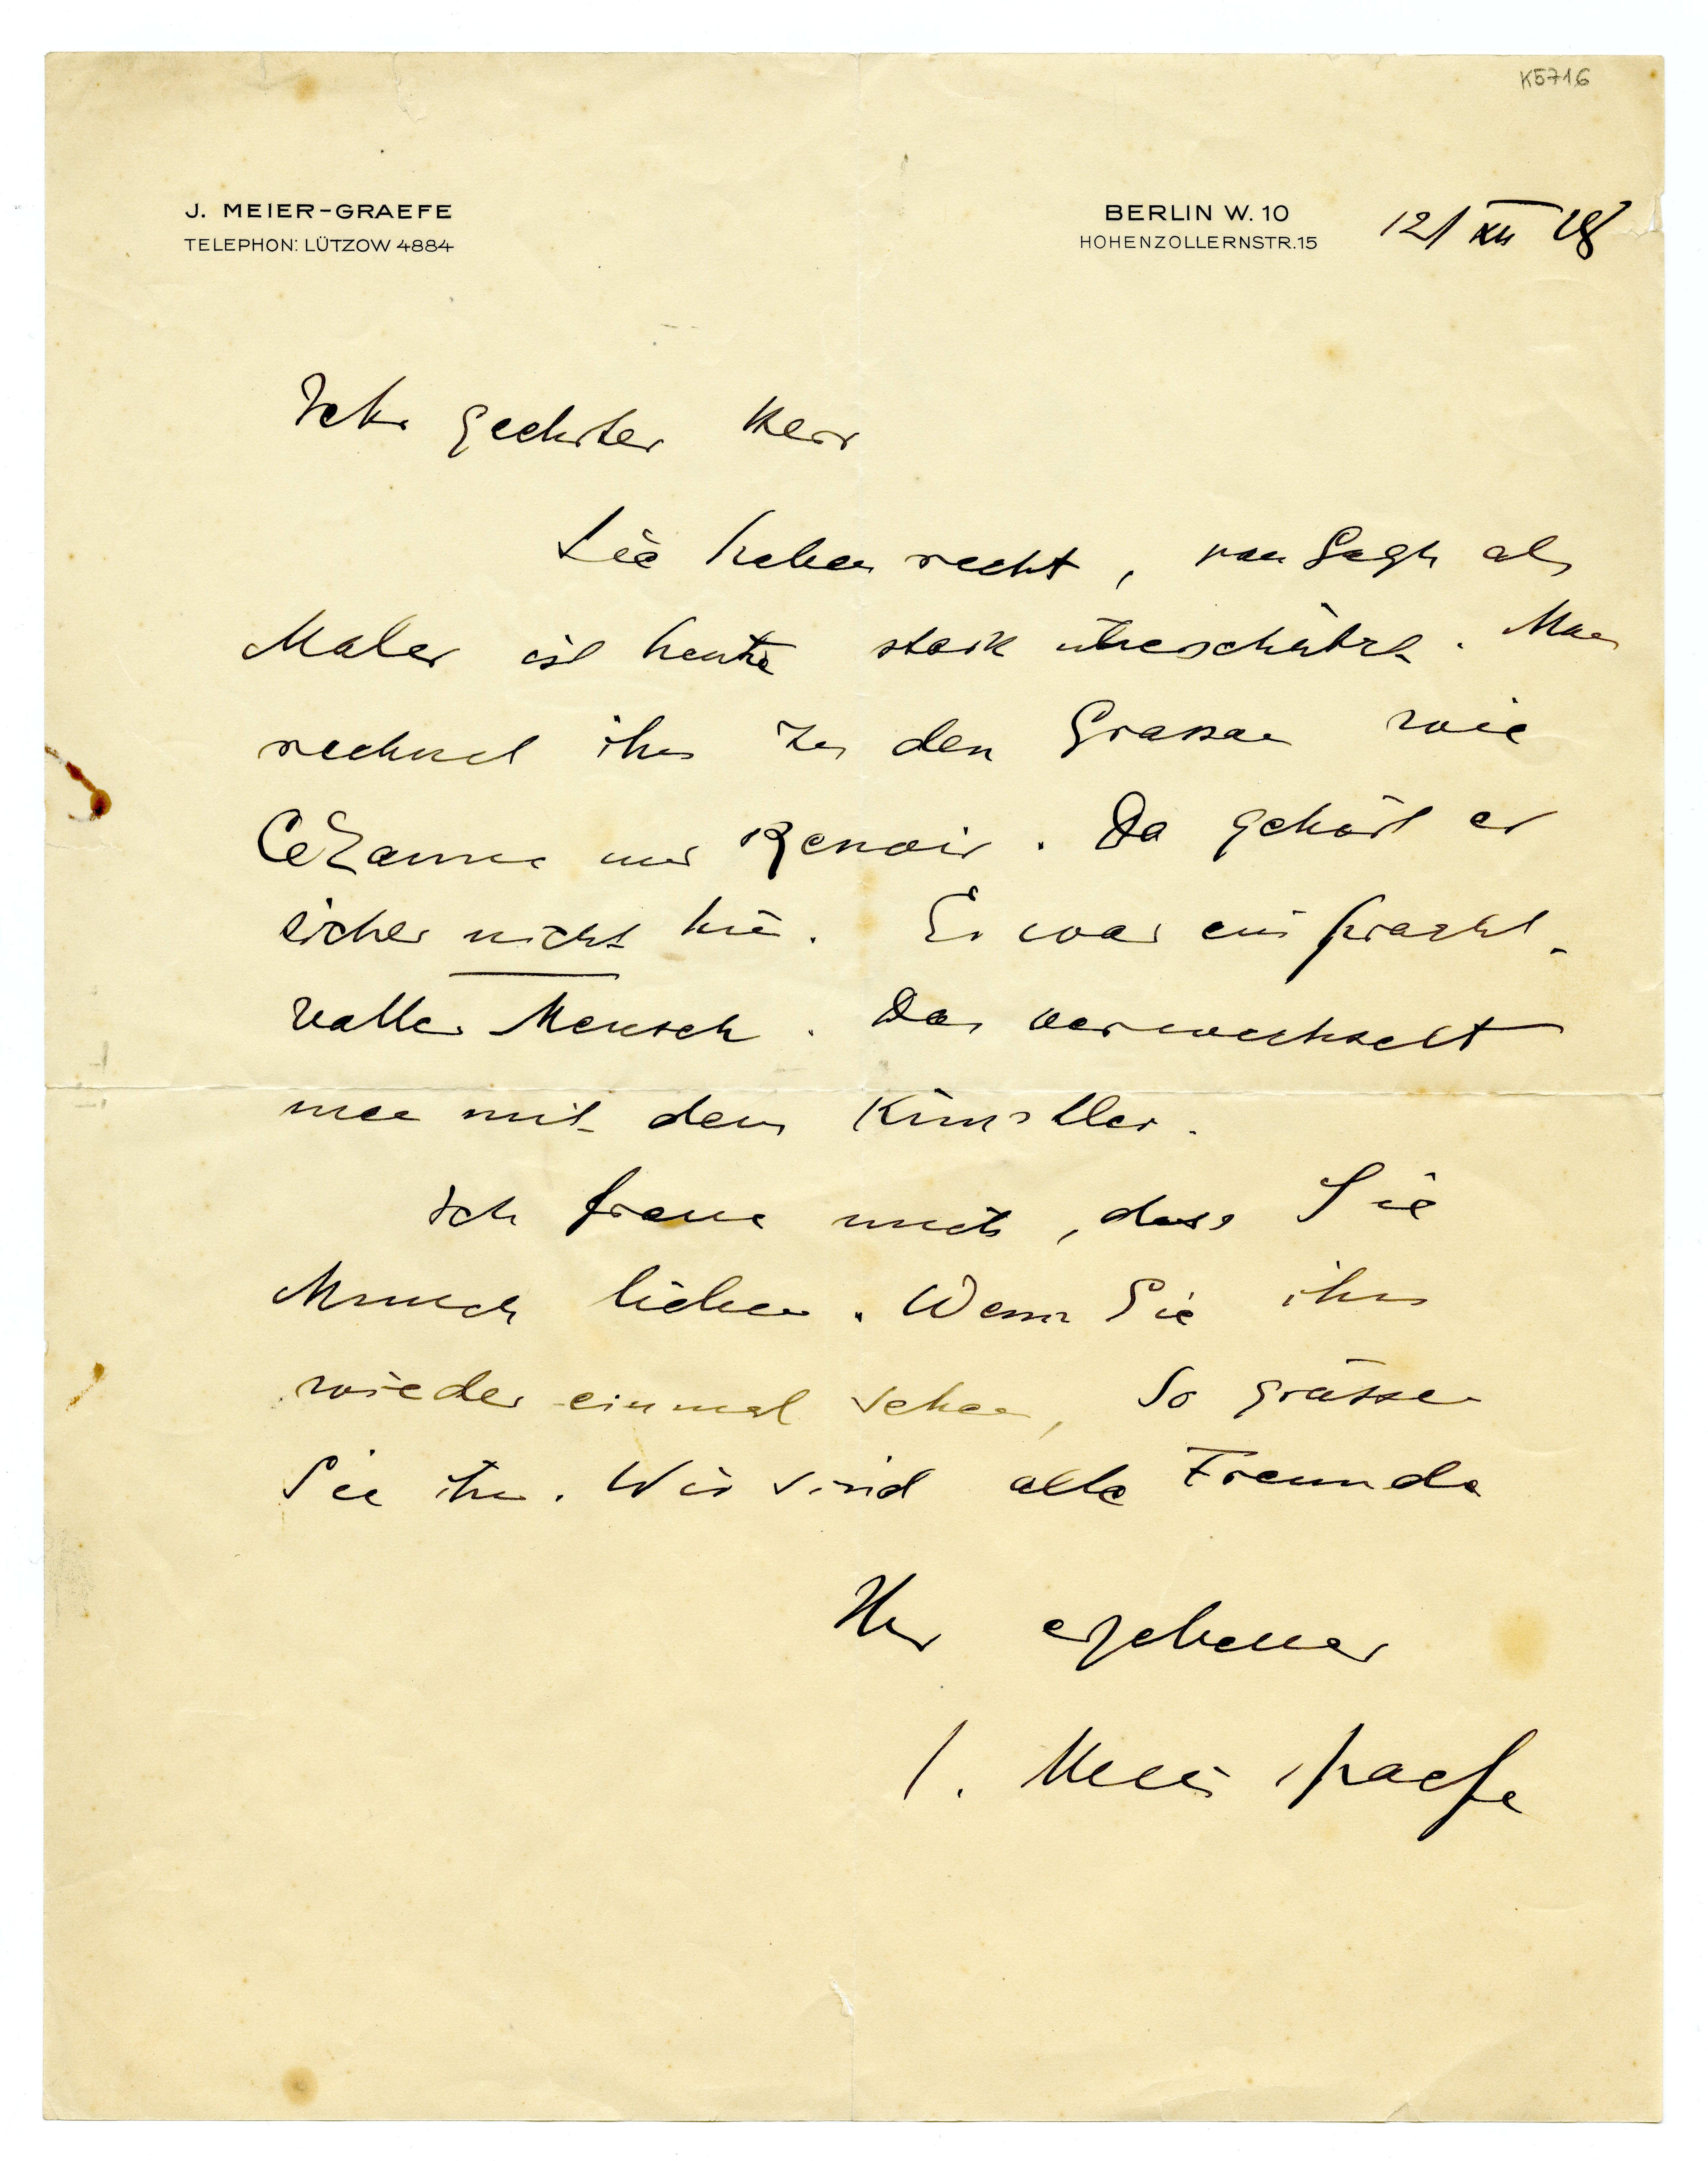 K5716
J. MEIER-GRAEFE
TELEPHON: LÜTZOW 4884
BERLIN W. 10
HOHENZOLLERNSTR. 15
12/XII 28
Sehr geehrter Herr
Sie haben recht, van Gogh als
Maler ist heute stark überschätzt. Man
rechnet ihn zu den Grossen wie
Cézanne und Renoir. Da gehört er
sicher nicht hin. Er war ein pracht-
voller Mensch. Das verwechselt
man mit dem Künstler.
Ich freue mich, dass Sie
Munch lieben. Wenn Sie ihn
wieder einmal sehen, so grüssen
Sie ihn. Wir sind alte Freunde
Ihr ergebener
J. Meier Graefe